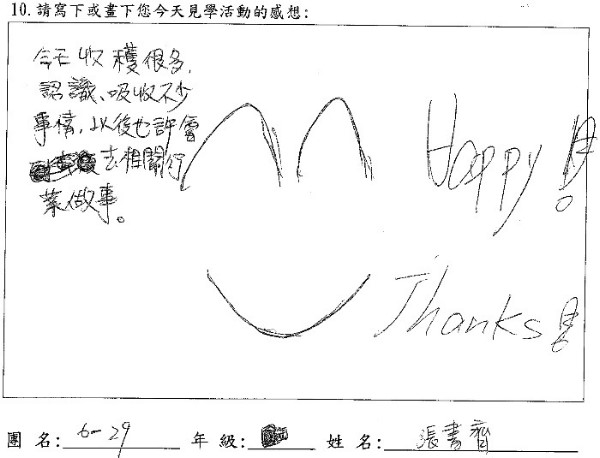 10. 請寫下或畫下您今天見學活動的感想:
今天收穫很多,
認識、吸收不少
事情,以後也許會
去相關行
業做事。
Happy!
Thanks!
團 名: 6-29 年 級: 姓 名: 張書齊